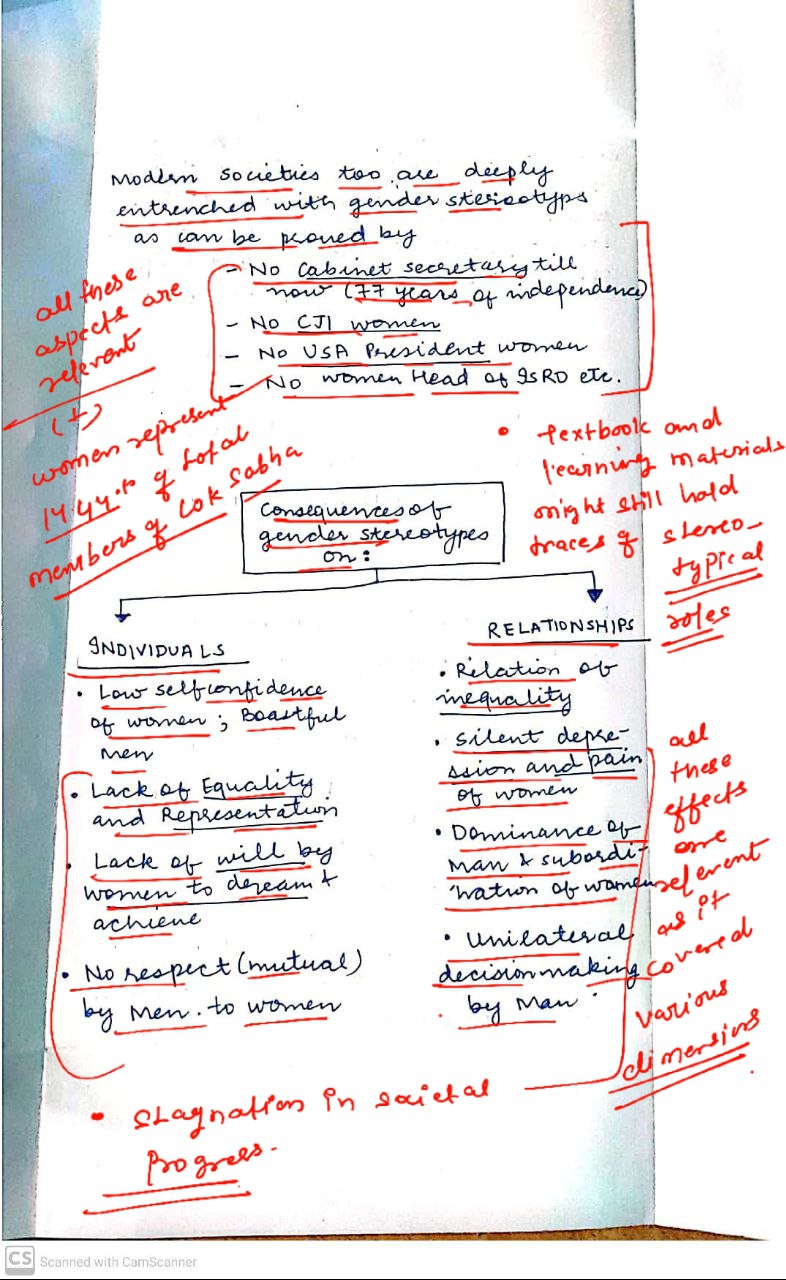 Modern societies too are deeply
entrenched with gender stereotyps
as can be proved by
- No Cabinet secretary till
now (77 years of independence)
- No CJI women
- No USA President women
- No women Head of ISRO etc.
all these
aspects are
relevent
(+)
women represent
14.44% of total
members of Lok Sabha
• textbook and
learning materials
might still hold
traces of stereo-
typical
roles
Consequences of
gender stereotypes
on :
INDIVIDUALS
• Low self confidence
of women ; Boastful
Men
• Lack of Equality
and Representation
• Lack of will by
women to dream &
achieve
• No respect (mutual)
by Men. to women
RELATIONSHIPS
• Relation of
inequality
• Silent depre-
ssion and pain
of women
• Dominance of
Man & subordi-
nation of women
• Unilateral
decision making
by Man
all
these
effects
are
relerent
as it
covered
various
dimensions
• Stagnation in societal
Progress.
CS Scanned with CamScanner